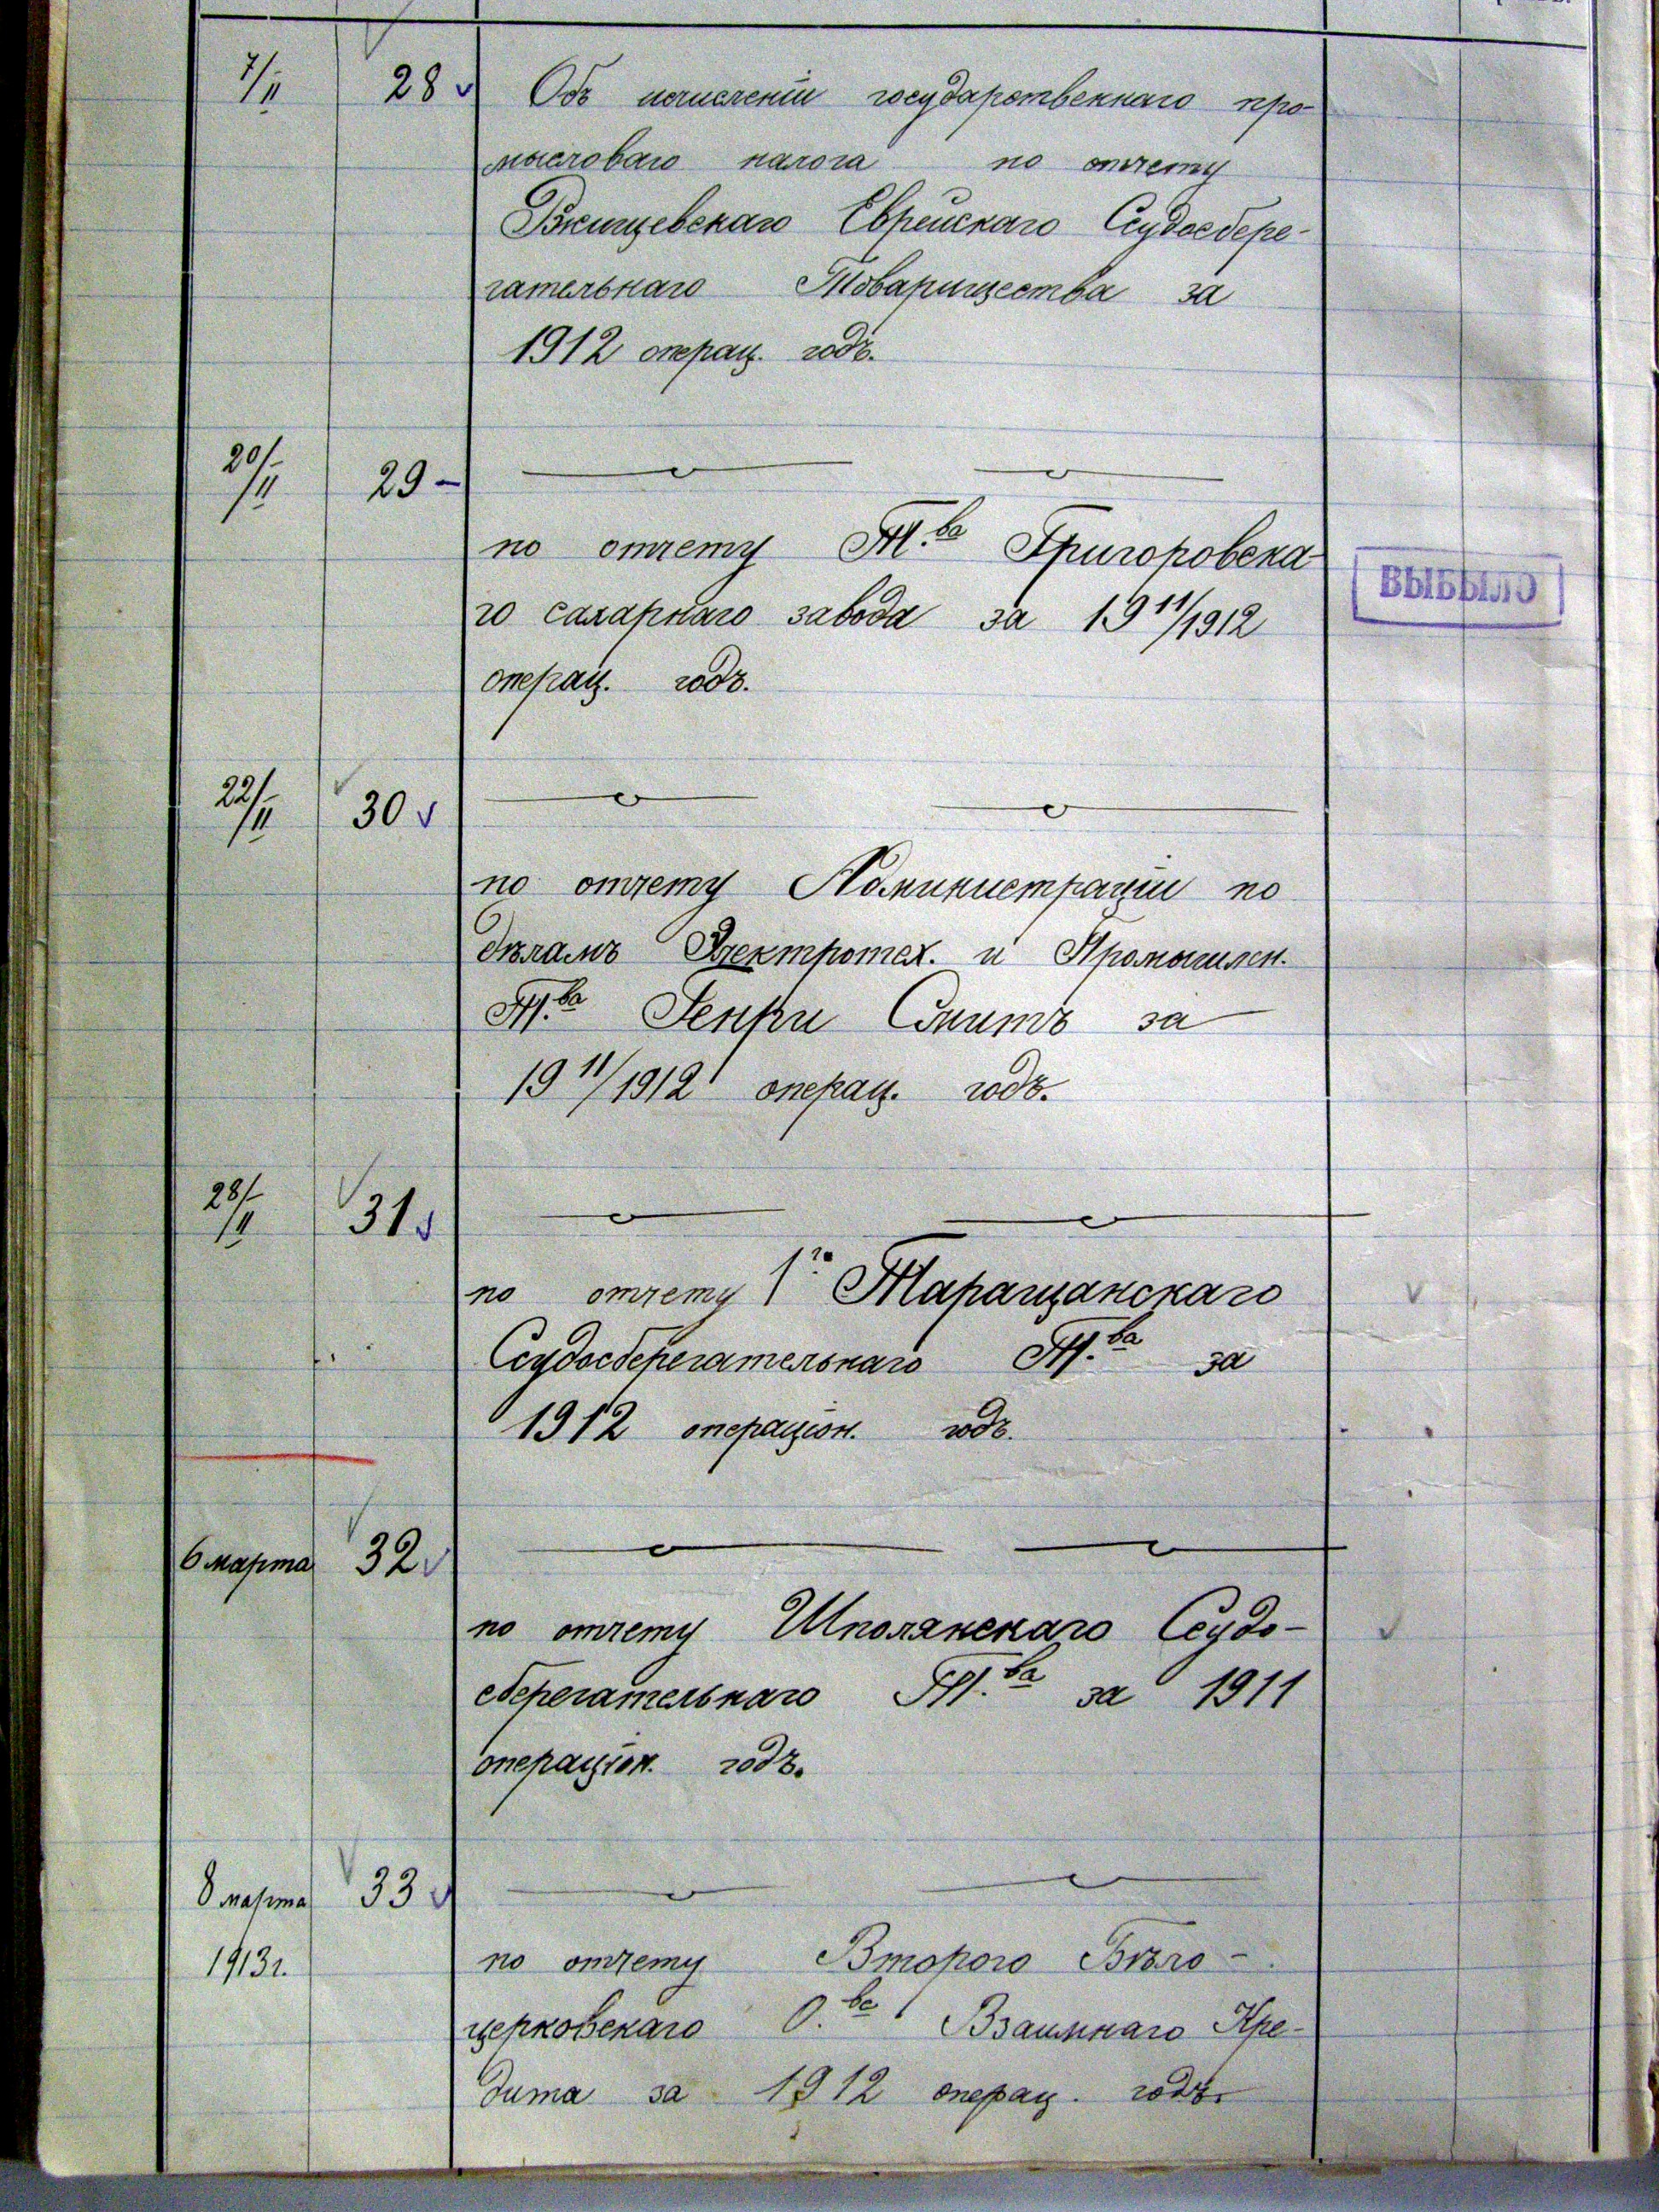 7/II 28 Объ исчисленіи государственнаго про-
мысловаго налога по отчету
Ржищевскаго Еврейскаго Ссудосбере-
гательнаго Товарищества за
1912 операц. годъ.
20/II 29 -
по отчету Т.ва Григоровска-
го сахарнаго завода за 19 11/1912
ВЫБЫЛО
операц. годъ.
22/II 30
по отчету Администраціи по
дѣламъ Электротех. и Промышлен.
Т.ва Генри Смитъ за
19 11/1912 операц. годъ.
28/II 31
по отчету 1го Таращанскаго
Ссудосберегательнаго Т.ва за
1912 операціон. годъ.
6 марта 32
по отчету Шполянскаго Ссудо-
сберегательнаго Т.ва за 1911
операціон. годъ.
8 марта 33
1913 г. по отчету Второго Бѣло-
церковскаго О.ва Взаимнаго Кре-
дита за 1912 операц. годъ.